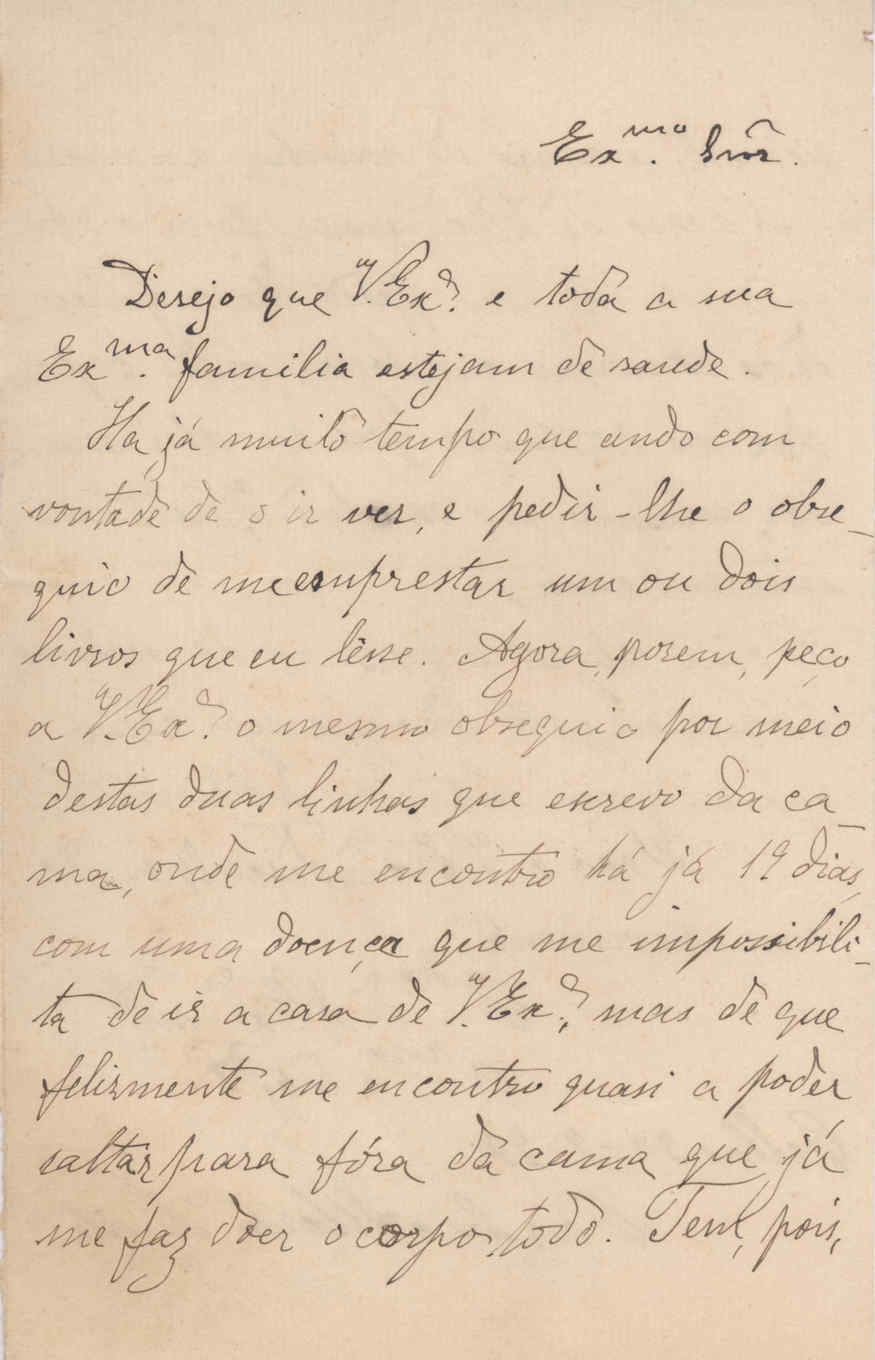 Ex.mo Snr.
Desejo que V. Exa. e toda a sua
Ex.ma familia estejam de saude.
Ha já muito tempo que ando com
vontade de o ir ver, e pedir-lhe o obse-
quio de me emprestar um ou dois
livros que eu lêsse. Agora, porem, peço
a V. Exa. o mesmo obsequio por meio
destas duas linhas que escrevo da ca
ma, onde me encontro há já 19 dias,
com uma doença que me impossibili-
ta de ir a casa de V. Exa., mas de que
felizmente me encontro quasi a poder
saltar para fóra da cama que já
me faz doer o corpo todo. Tem, pois,